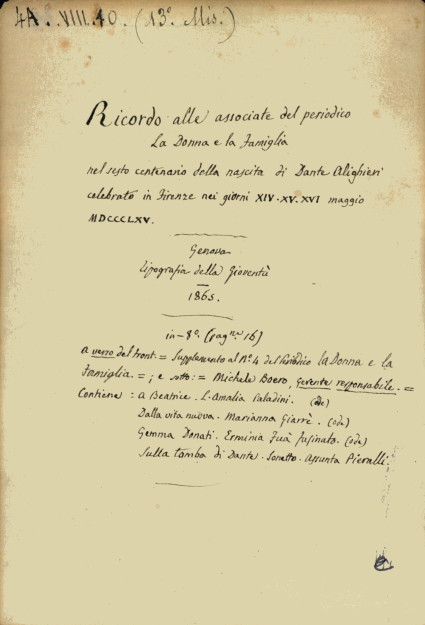 4A. VIII. 40. (13º Mis.)
Ricordo alle associate del periodico
La Donna e la Famiglia
nel sesto centenario della nascita di Dante Alighieri
celebrato in Firenze nei giorni XIV-XV.XVI maggio
MDCCCLXV.
Genova
tipografia della Gioventù
1865.
in-8º. (pagne 16)
a verso del front. = Supplemento al Nº 4 del Periodico La Donna e la
Famiglia. = ; e sotto: = Michele Boero, gerente responsabile. =
Contiene : a Beatrice - L. Amalia Paladini. (ode)
Dalla vita nuova - Marianna Giarrè. (ode)
Gemma Donati. Erminia Fuà Fusinato. (ode)
Sulla tomba di Dante - Sonetto - Assunta Pieralli.